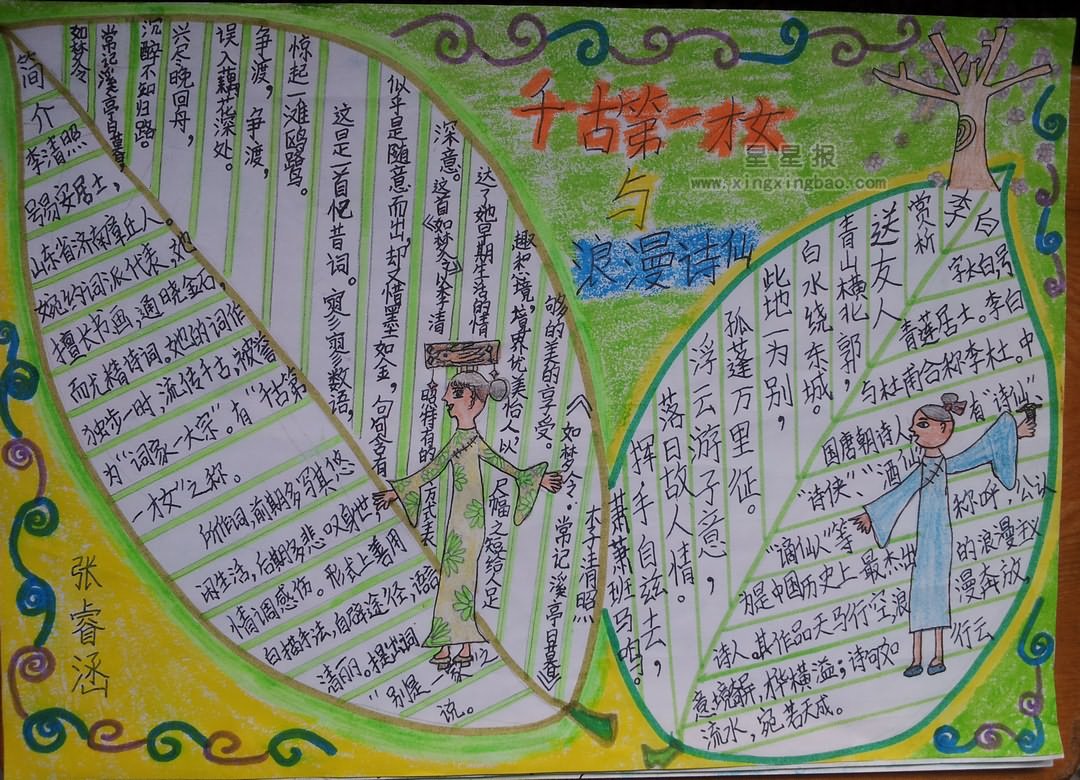 千古第一才女
与
浪漫诗仙
星星报
www.xingxingbao.com
如梦令
常记溪亭日暮，
沉醉不知归路。
兴尽晚回舟，
误入藕花深处。
争渡，争渡，
惊起一滩鸥鹭。
这是一首忆昔词。寥寥数语，
似乎是随意而出，却又惜墨如金，句句含有
深意。这首《如梦令》以李清
照特有的方式表
达了她早期生活的情
趣和心境，境界优美怡人，以
尺幅之短给人足
够的美的享受。
《如梦令·常记溪亭日暮》
李清照
简介
李清照
号易安居士，
山东省济南章丘人。
婉约词派代表，她
擅长书画，通晓金石，
而尤精诗词。她的词作
独步一时，流传千古，被誉
为“词家一大宗”。有“千古第
一才女”之称。
所作词，前期多写其悠
闲生活，后期多悲叹身世，
情调感伤。形式上善用
白描手法，自辟途径，语言
清丽。提出词
“别是一家”之
说。
张睿涵
赏析
送友人
青山横北郭，
白水绕东城。
此地一为别，
孤蓬万里征。
浮云游子意，
落日故人情。
挥手自兹去，
萧萧班马鸣。
李白
字太白号
青莲居士。李白
与杜甫合称李杜。中
国唐朝诗人有“诗仙”、
“诗侠”、“酒仙”、
“谪仙人”等称呼，公认
为是中国历史上最杰出的浪漫主义
诗人。其作品天马行空，浪漫奔放，
意境奇异，才华横溢；诗句如行云
流水，宛若天成。